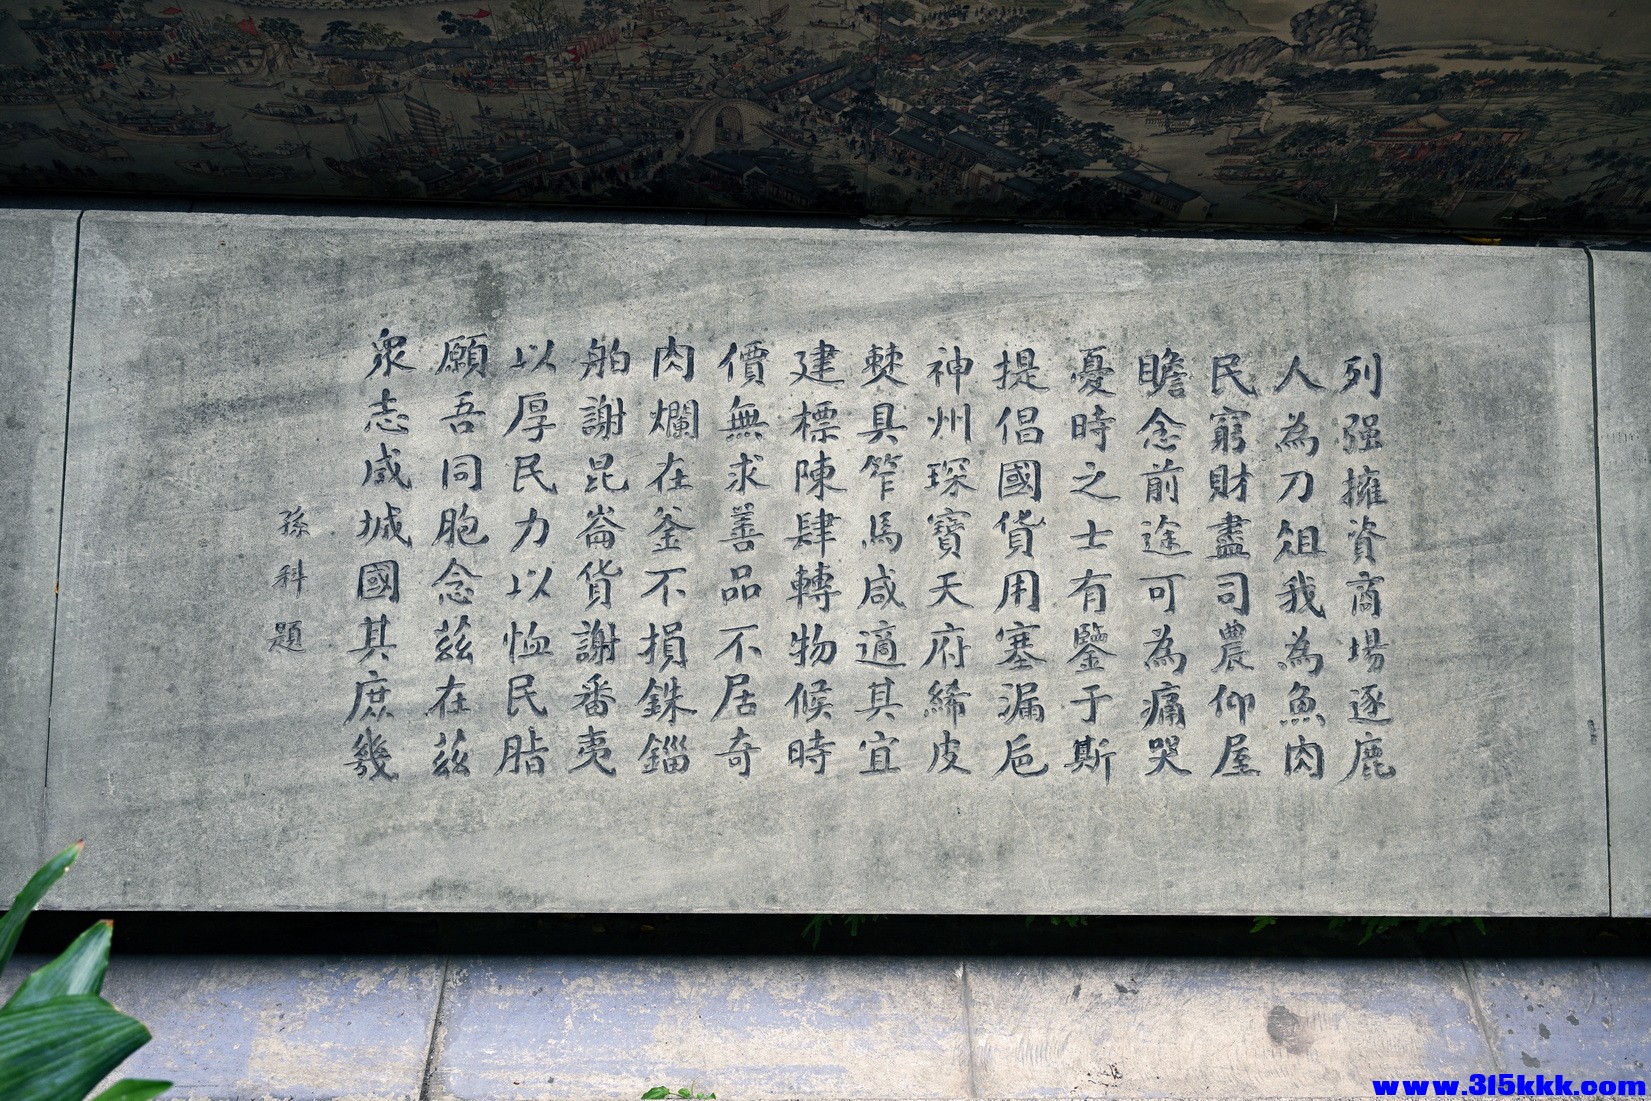 列强擁資商場逐鹿
人為刀俎我為魚肉
民窮財盡司農仰屋
瞻念前途可為痛哭
憂時之士有鑒于斯
提倡國貨用塞漏卮
神州琛寶天府絺皮
僰具筰馬咸適其宜
建標陳肆轉物候時
價無求善品不居奇
肉爛在釜不損銖錙
舶謝昆崙貨謝番夷
以厚民力以恤民脂
願吾同胞念茲在茲
眾志咸城國其庶幾
孫科題
www.315kkk.com